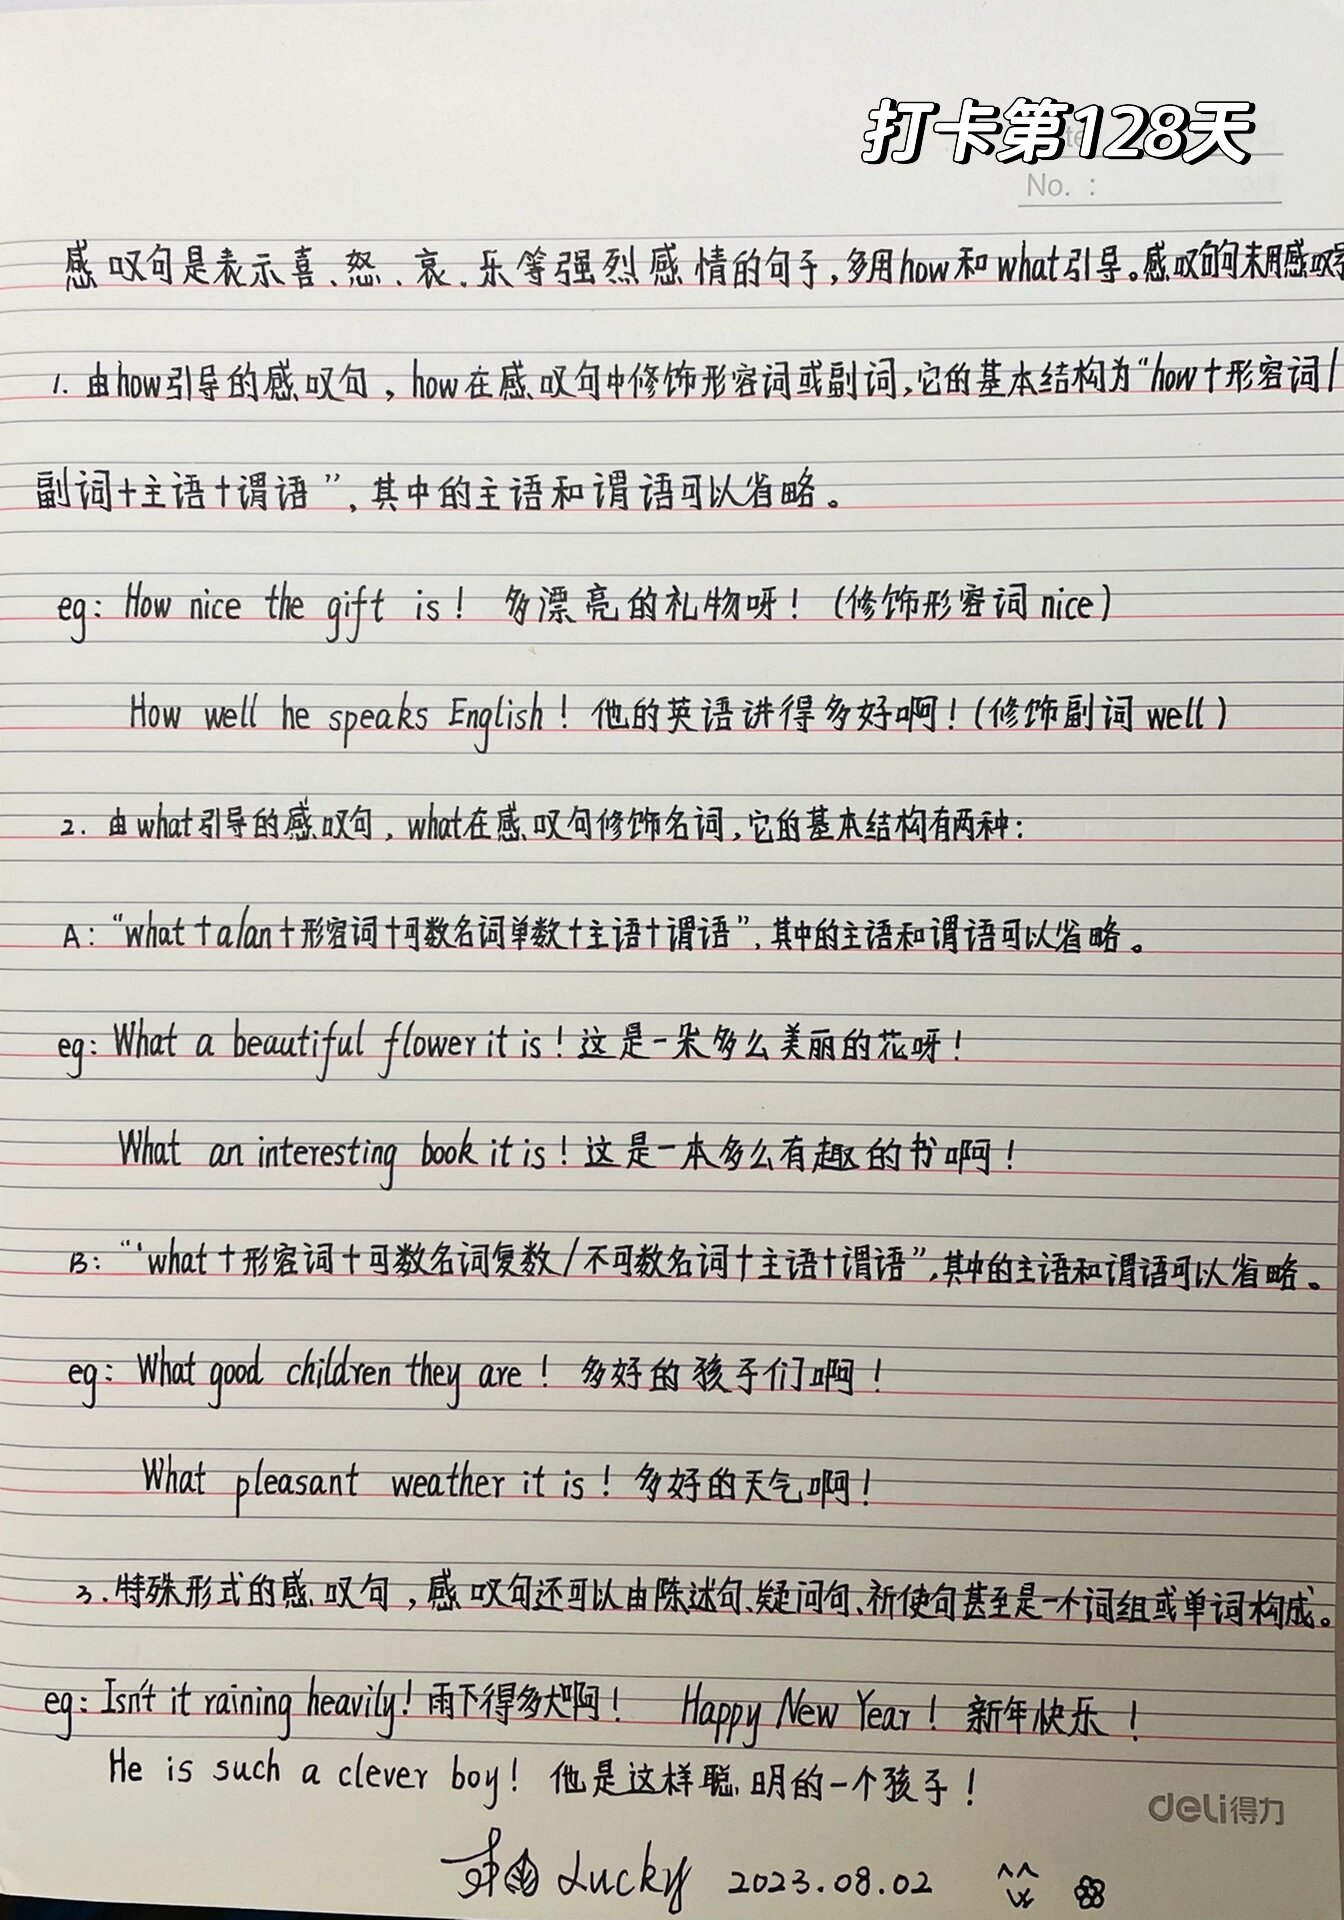 打卡第128天
No. :
感叹句是表示喜、怒、哀、乐等强烈感情的句子,多用how和what引导。感叹句句末用感叹号
1. 由how引导的感叹句,how在感叹句中修饰形容词或副词,它的基本结构为“how+形容词/
副词+主语+谓语”,其中的主语和谓语可以省略。
eg: How nice the gift is! 多漂亮的礼物呀!(修饰形容词nice)
How well he speaks English! 他的英语讲得多好啊!(修饰副词well)
2. 由what引导的感叹句,what在感叹句修饰名词,它的基本结构有两种:
A:“what+a/an+形容词+可数名词单数+主语+谓语”,其中的主语和谓语可以省略。
eg: What a beautiful flower it is! 这是一朵多么美丽的花呀!
What an interesting book it is! 这是一本多么有趣的书啊!
B:“what+形容词+可数名词复数/不可数名词+主语+谓语”,其中的主语和谓语可以省略。
eg: What good children they are! 多好的孩子们啊!
What pleasant weather it is! 多好的天气啊!
3.特殊形式的感叹句,感叹句还可以由陈述句、疑问句、祈使句甚至是一个词组或单词构成。
eg: Isn't it raining heavily! 雨下得多大啊! Happy New Year! 新年快乐!
He is such a clever boy! 他是这样聪明的一个孩子!
deli得力
Lucky 2023.08.02